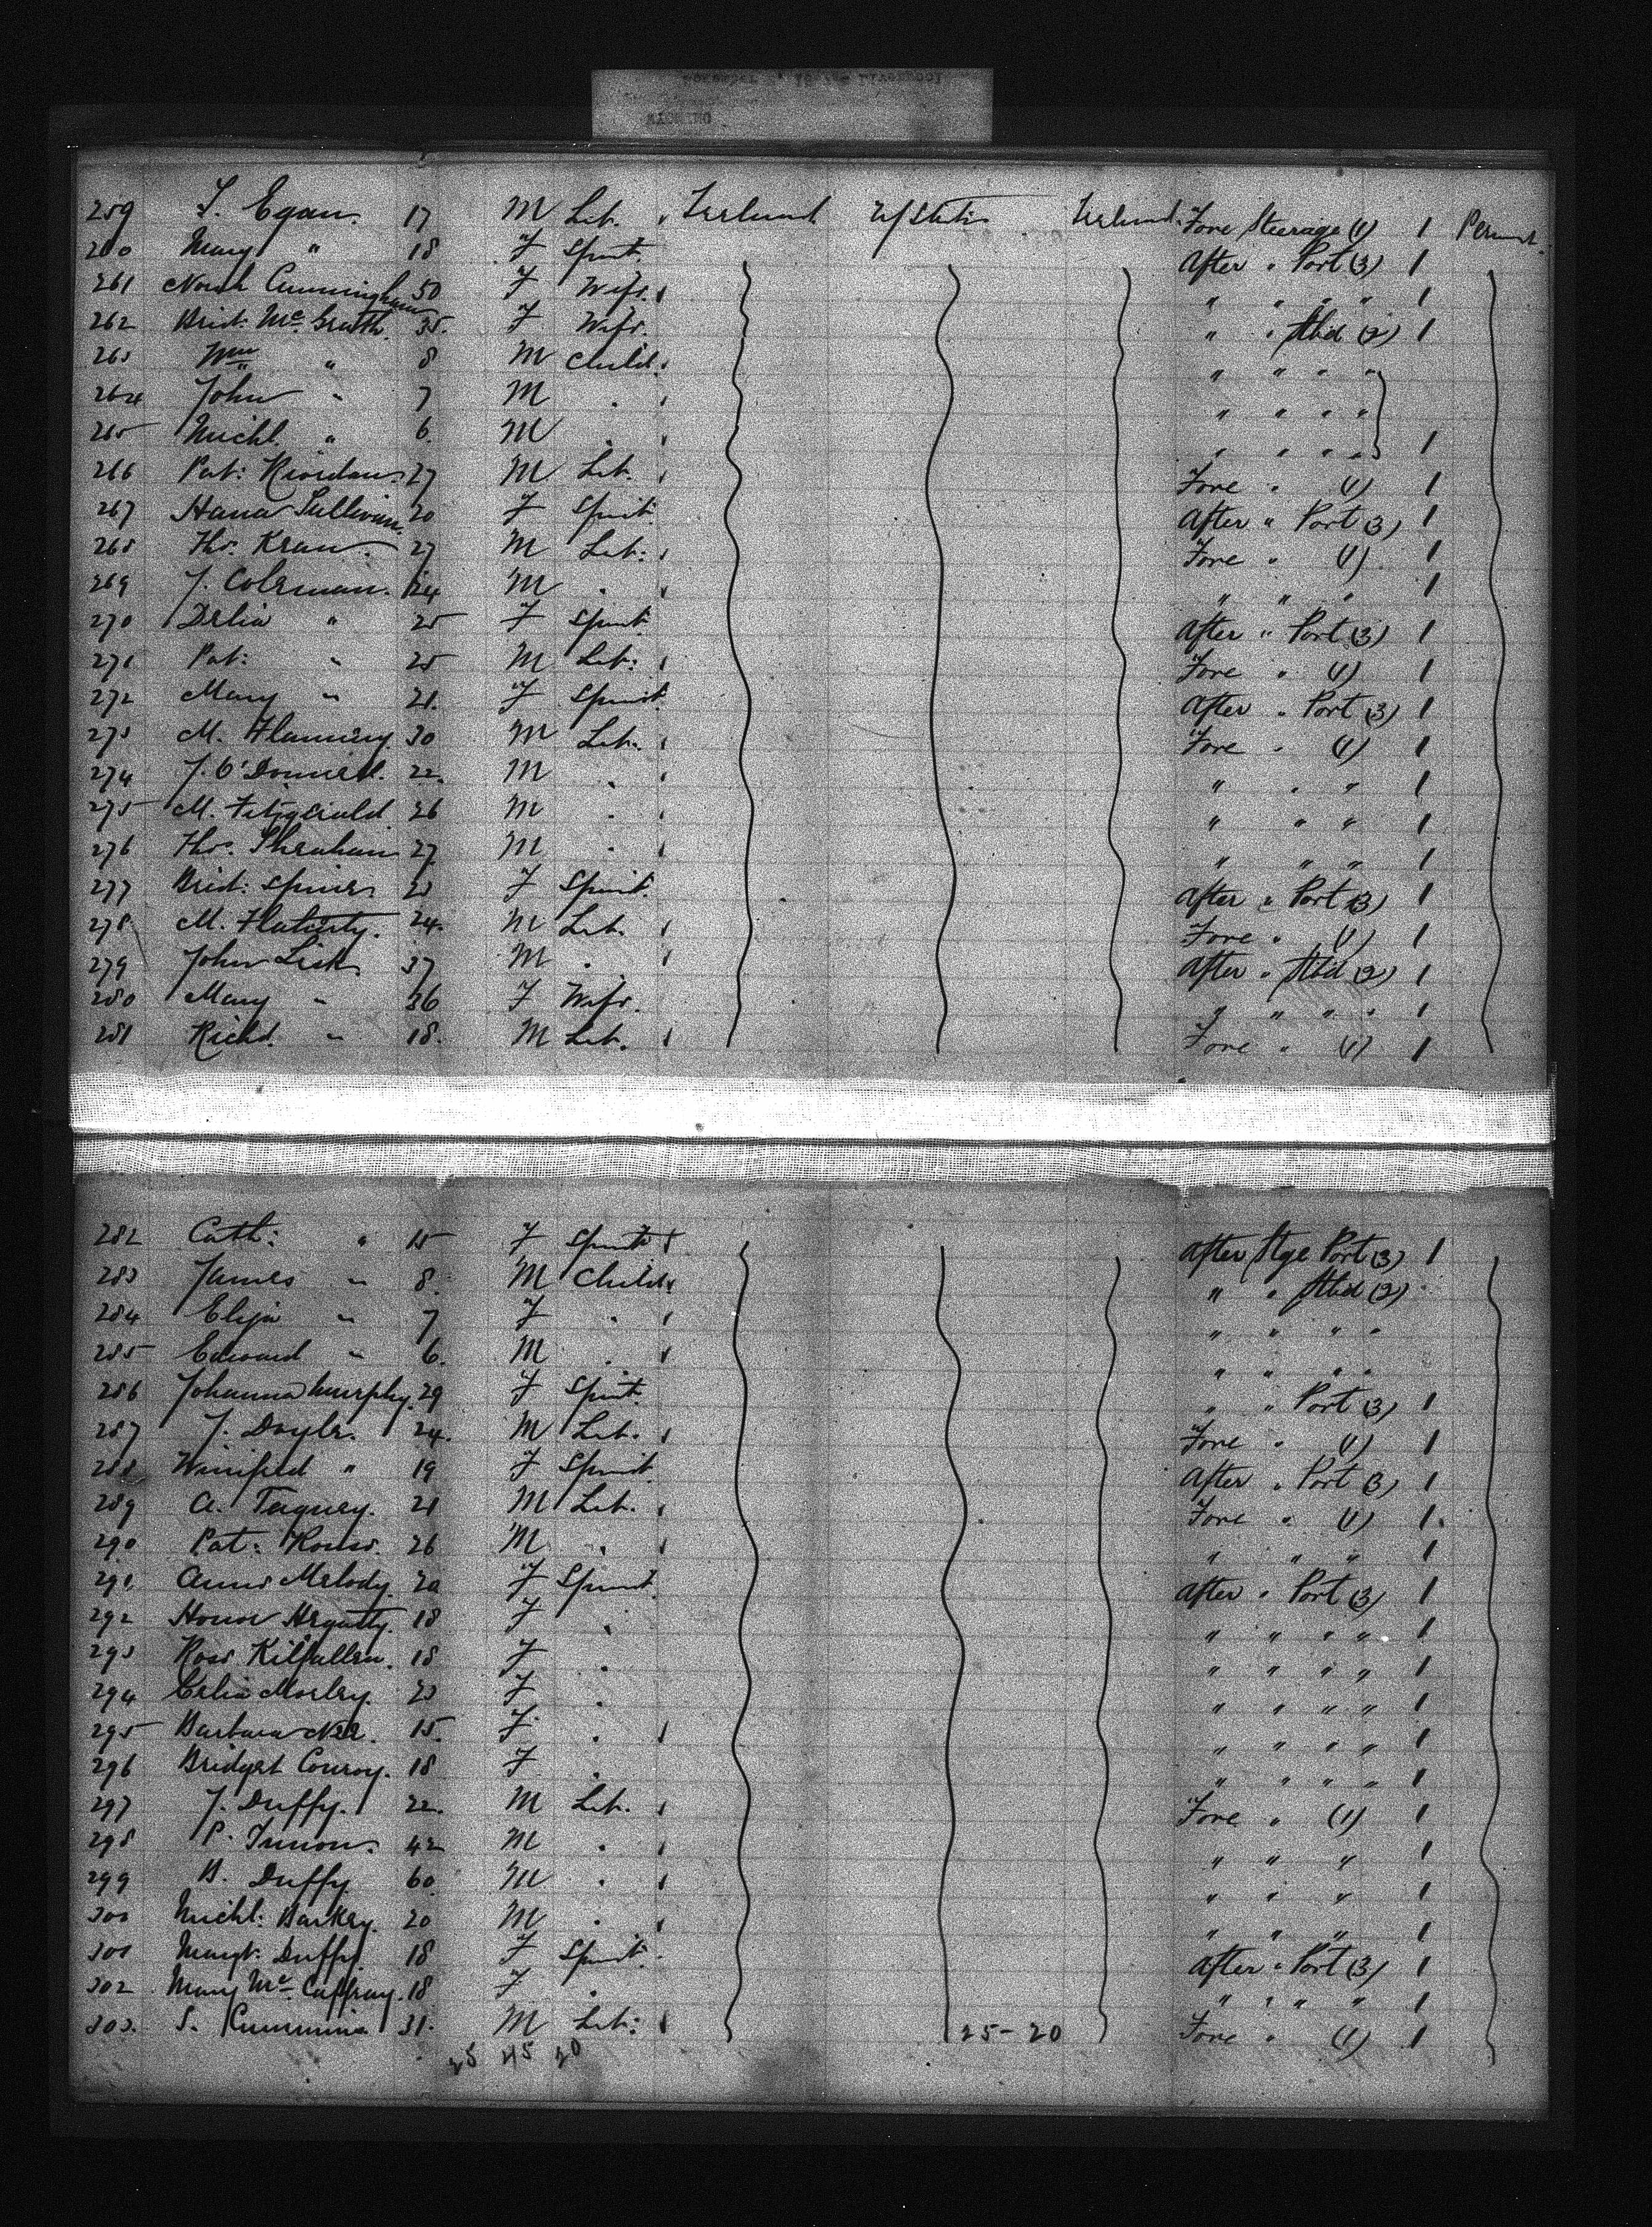 259 T. Egan 17 M Lab. Ireland U/States Ireland Fore Steerage (1) 1 Perm't
260 Mary " 18 F Spinst. After " Port (3) 1
261 Norah Cunningham 50 F Wife " " " " 1
262 Brid: McGrath 35. F Wife. " " Stbd (2) 1
263 Wm " 8 M Child " " " "
264 John " 7 M " " " " "
265 Michl. " 6. M " " " " " 1
266 Pat: Riordan 27 M Lab. Fore " (1) 1
267 Hana Sullivan 20 F Spinst. After " Port (3) 1
268 Tho. Kran 27 M Lab: Fore " (1) 1
269 J. Coleman. 24 M " " " " 1
270 Delia " 25 F Spinst After " Port (3) 1
271 Pat: " 25 M Lab: Fore " (1) 1
272 Mary " 21. F Spinst After " Port (3) 1
273 M. Flannery 30 M Lab. Fore " (1) 1
274 J. O'Donnell. 22. M " " " " 1
275 M. Fitzgerald 26 M " " " " 1
276 Tho. Sheahan 27 M " " " " 1
277 Brid: 23 F Spinst. After " Port (3) 1
278 M. Flaherty. 24. M Lab. Fore " (1) 1
279 John Lisk 37 M " After " Stbd (2) 1
280 Mary " 36 F Wife. " " " " 1
281 Richd. " 18. M Lab. Fore " (1) 1
282 Cath: " 15 F Spinst After Stge Port (3) 1
283 James " 8. M Child " " Stbd (2)
284 Eliza " 7 F " " " " "
285 Edward " 6. M " " " " "
286 Johanna Murphy. 29 F Spinst. " " Port (3) 1
287 J. Doyle. 24. M Lab. Fore " (1) 1
288 Winifred " 19 F Spinst. After " Port (3) 1
289 A. Taguey. 21 M Lab. Fore " (1) 1
290 Pat: 26 M " " " " 1
291 Annie Melody. 20 F Spinst After " Port (3) 1
292 Honor Hegarty. 18 F " " " " " 1
293 Rose Kilfullen. 18 F " " " " " 1
294 Celia Morley. 23 F " " " " " 1
295 Barbara Nee. 15. F " " " " " 1
296 Bridget Conroy. 18 F " " " " " 1
297 J. Duffy. 22. M Lab. Fore " (1) 1
298 P. 42 M " " " " 1
299 B. Duffy 60. M " " " " 1
300 Michl: Barkey. 20 M " " " " 1
301 Margt. Duffy. 18 F Spinst. After " Port (3) 1
302 Mary McCaffray. 18 F " " " " " 1
303. S. Cummins 31. M Lab: 25-20 Fore " (1) 1
25 45 20